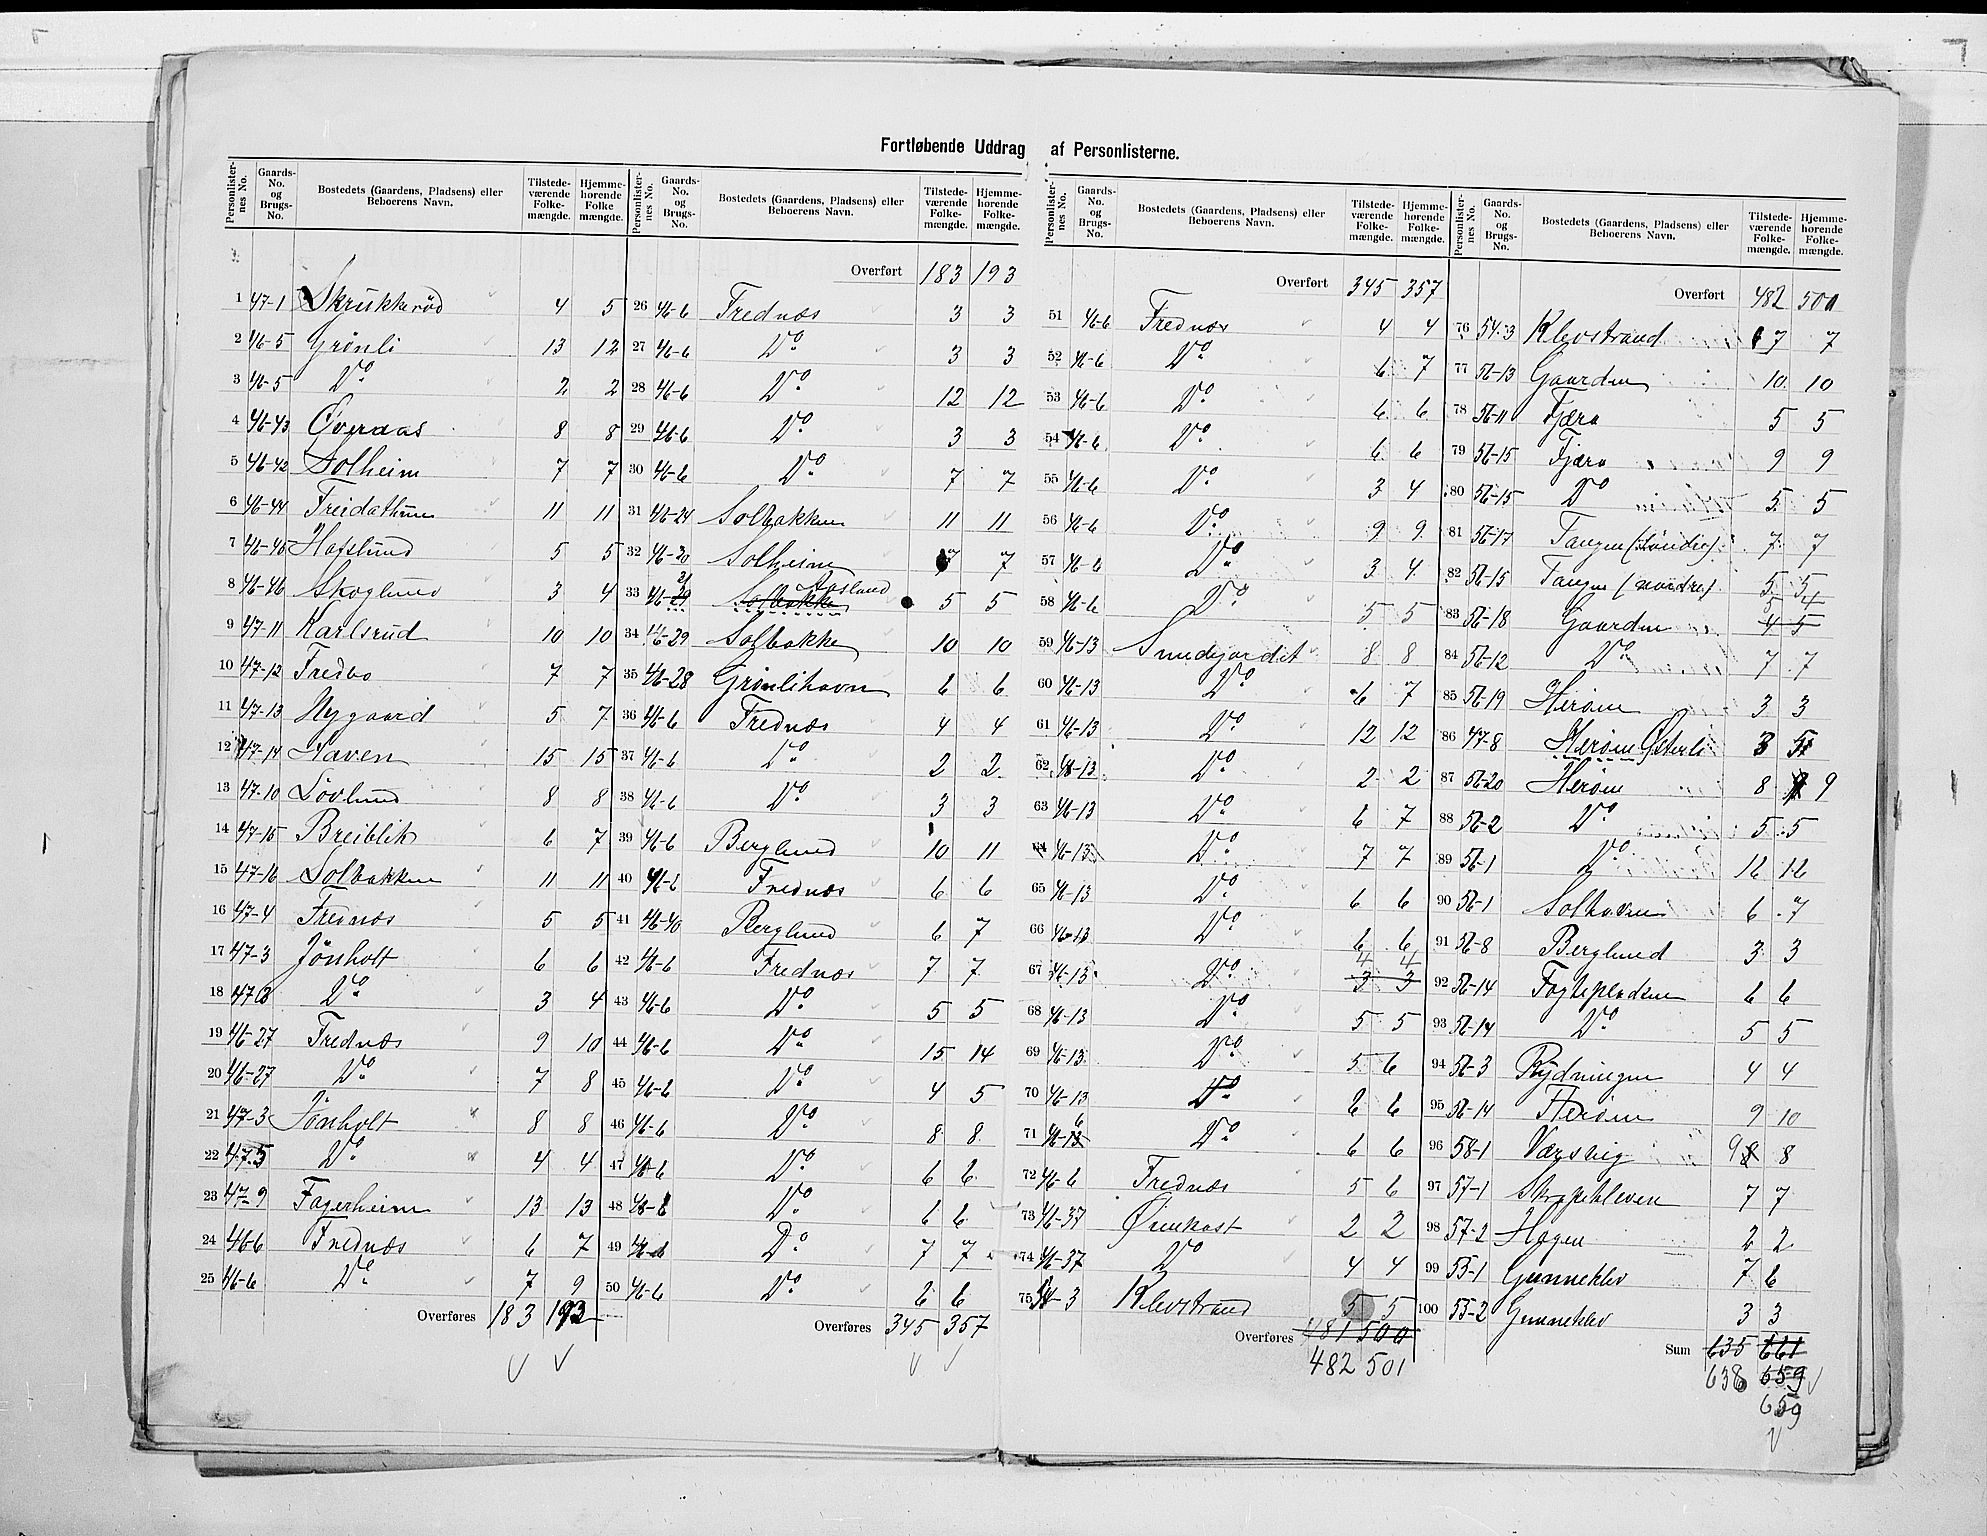 Fortløbende Uddrag af Personlisterne.
Personlister-nes No. Gaards-No. og Brugs-No. Bostedets (Gaardens, Pladsens) eller Beboerens Navn. Tilstede-værende Folke-mængde. Hjemme-hørende Folke mængde.
1 47-1 Skrukkerød 4 5
2 46-5 Grønli 13 12
3 46-5 Do 2 2
4 46-43 Øveraas 8 8
5 46-42 Solheim 7 7
6 46-44 Freidathun 11 11
7 46-45 Hafslund 5 5
8 46-46 Skoglund 3 4
9 47-11 Karlsrud 10 10
10 47-12 Fredbo 7 7
11 47-13 Nygaard 5 7
12 47-14 Haven 15 15
13 47-10 Løvlund 8 8
14 47-15 Breiblik 6 7
15 47-16 Solbakken 11 11
16 47-4 Frednæs 5 5
17 47-3 Jønholt 6 6
18 47-3 Do 3 4
19 46-27 Frednæs 9 10
20 46-27 Do 7 8
21 47-3 Jønholt 8 8
22 47-5 Do 4 4
23 47-9 Fagerheim 13 13
24 46-6 Frednæs 6 7
25 46-6 Do 7 9
Overføres 183 193
Personlister-nes No. Gaards-No. og Brugs-No. Bostedets (Gaardens, Pladsens) eller Beboerens Navn. Tilstede-værende Folke-mængde. Hjemme-hørende Folke-mængde.
Overført 183 193
26 46-6 Frednæs 3 3
27 46-6 Do 3 3
28 46-6 Do 12 12
29 46-6 Do 3 3
30 46-6 Do 7 7
31 46-24 Solbakken 11 11
32 46-30 Solheim 7 7
33 46-29 21 Solbakke Aaslund 5 5
34 46-29 Solbakke 10 10
35 46-28 Grønlihavn 6 6
36 46-6 Frednæs 4 4
37 46-6 Do 2 2
38 46-6 Do 3 3
39 46-6 Berglund 10 11
40 46-6 Frednæs 6 6
41 46-40 Berglund 6 7
42 46-6 Frednæs 7 7
43 46-6 Do 5 5
44 46-6 Do 15 14
45 46-6 Do 4 5
46 46-6 Do 8 8
47 46-6 Do 6 6
48 46-6 Do 6 6
49 46-6 Do 7 7
50 46-6 Do 6 6
Overføres 345 357
Personlister-nes No. Gaards-No. og Brugs-No. Bostedets (Gaardens, Pladsens) eller Beboerens Navn. Tilstede-værende Folke-mængde. Hjemme-hørende Folke-mængde.
Overført 345 357
51 46-6 Frednæs 4 4
52 46-6 Do 6 7
53 46-6 Do 6 6
54 46-6 Do 6 6
55 46-6 Do 3 4
56 46-6 Do 9 9
57 46-6 Do 3 4
58 46-6 Do 5 5
59 46-13 Smedejordet 8 8
60 46-13 Do 6 7
61 46-13 Do 12 12
62 46-13 Do 2 2
63 46-13 Do 6 7
64 46-13 Do 7 7
65 46-13 Do 6 6
66 46-13 Do 6 6
67 46-13 Do 4 4 3 3
68 46-13 Do 5 5
69 46-13 Do 5 6
70 46-13 Do 6 6
71 46-13 6 Do 6 6
72 46-6 Frednæs 5 6
73 46-37 Ønekast 2 2
74 46-37 Do 4 4
75 54-3 Klevstrand 5 5
Overføres 481 500
482 501
Personlister-nes No. Gaards-No. og Brugs-No. Bostedets (Gaardens, Pladsens) eller Beboerens Navn. Tilstede-værende Folke-mængde. Hjemme-hørende Folke-mængde.
Overført 482 501
76 54-3 Klevstrand 7 7
77 56-13 Gaarden 10 10
78 56-11 Fjæra 5 5
79 56-15 Fjæra 9 9
80 56-15 Do 5 5
81 56-17 Tangen (søndre) 7 7
82 56-15 Tangen (nordre) 5 5
83 56-18 Gaarden 5 4 4 5
84 56-12 Do 7 7
85 56-19 Herøen 3 3
86 47-8 Herøen Østerli 3 5
87 56-20 Herøen 8 9
88 56-2 Do 5 5
89 56-1 Do 16 16
90 56-1 Solhaven 6 7
91 56-8 Berglund 3 3
92 56-14 Fogtepladsen 6 6
93 56-14 Do 5 5
94 56-3 Rydningen 4 4
95 56-14 Herøen 9 10
96 58-1 Versvig 9 8 8
97 57-1 Skjepekleven 7 7
98 57-2 Hagen 2 2
99 55-1 Gunneklev 7 6
100 55-2 Gunneklev 3 3
Sum 635 661
638 659
659